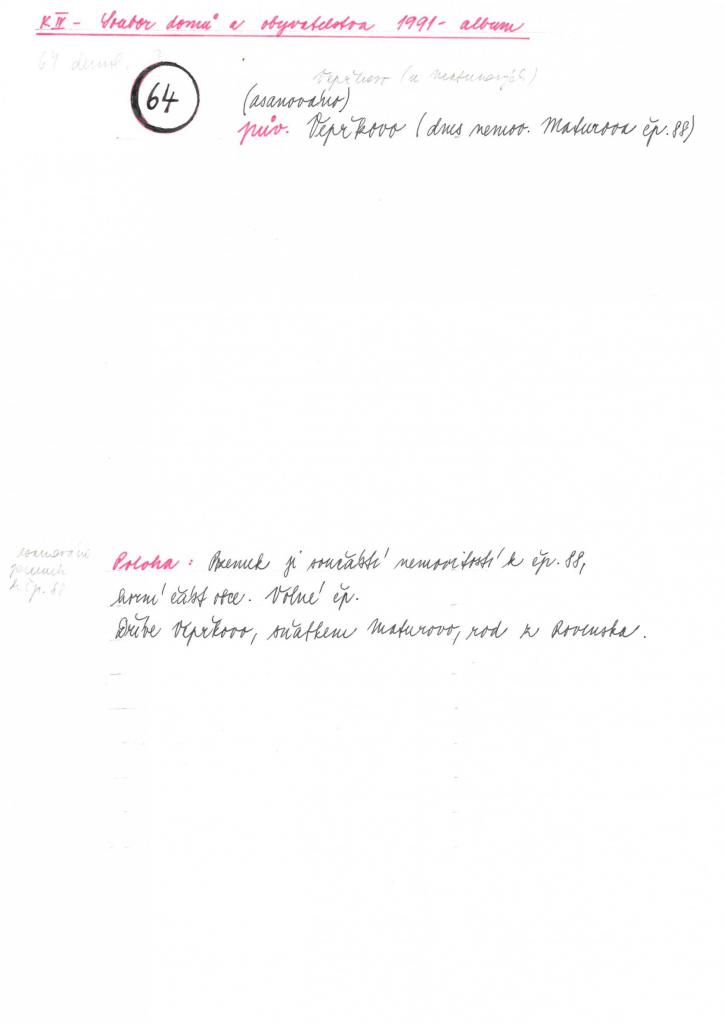 K IV - Soubor domů a obyvatelstva 1991 - album
64 demol.
Vepřkovo (u Maturových)
64
(asanováno)
pův. Vepřkovo (dnes nemov. Maturova čp. 88)
pozemek
k čp. 88
Poloha: Pozemek je součástí nemovitostí k čp. 88,
horní část obce. Volné čp.
Dříve Vepřkovo, sňatkem Maturovo, rod z Rovenska.